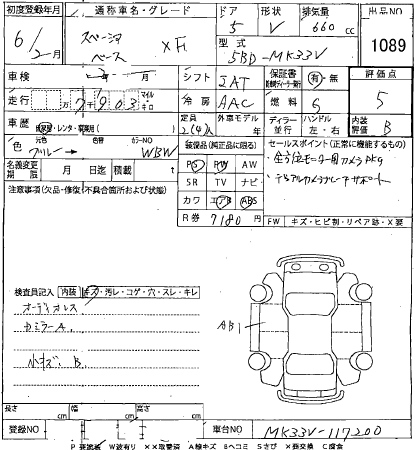 初度登録年月 通称車名・グレード ドア 形状 排気量 出品NO
6/2月 スペーシア ベース XF 5 V 660 cc
型式 5BD-MK33V 1089
車検 年 月 シフト IAT 保証書 有・無 評価点
走行 万 7千903 マイル キロ 冷房 AAC 燃料 G 5
車歴 自家用・レンタ・ 定員 2(4)人 外車モデル 年 ディーラー 並行 ハンドル 左・右 内装評価 B
色 元色 ブルー → 色替 カラーNO WBW
装備品(純正品に限る) セールスポイント(正常に機能するもの)
名義変更期限 月 日迄 積載 t
PS PW AW ・全方位モニター用カメラPKG
注意事項(欠品・修復/不具合箇所および状態)
SR TV ナビ ・デュアルカメラブレーキサポート
カワ エアB ABS
R券 7180円 FW キズ・ヒビ・リペア跡・X要
検査員記入 内装 キズ・汚レ・コゲ・穴・スレ・キレ
オーディオレス
カミラーA
小キズ、B
AB1
長さ cm 幅 cm 高さ cm
登録NO 車台NO MK33V-117200
P 要塗装 W波有り XX取替済 A線キズ Bヘコミ Sさび X要交換 C腐食